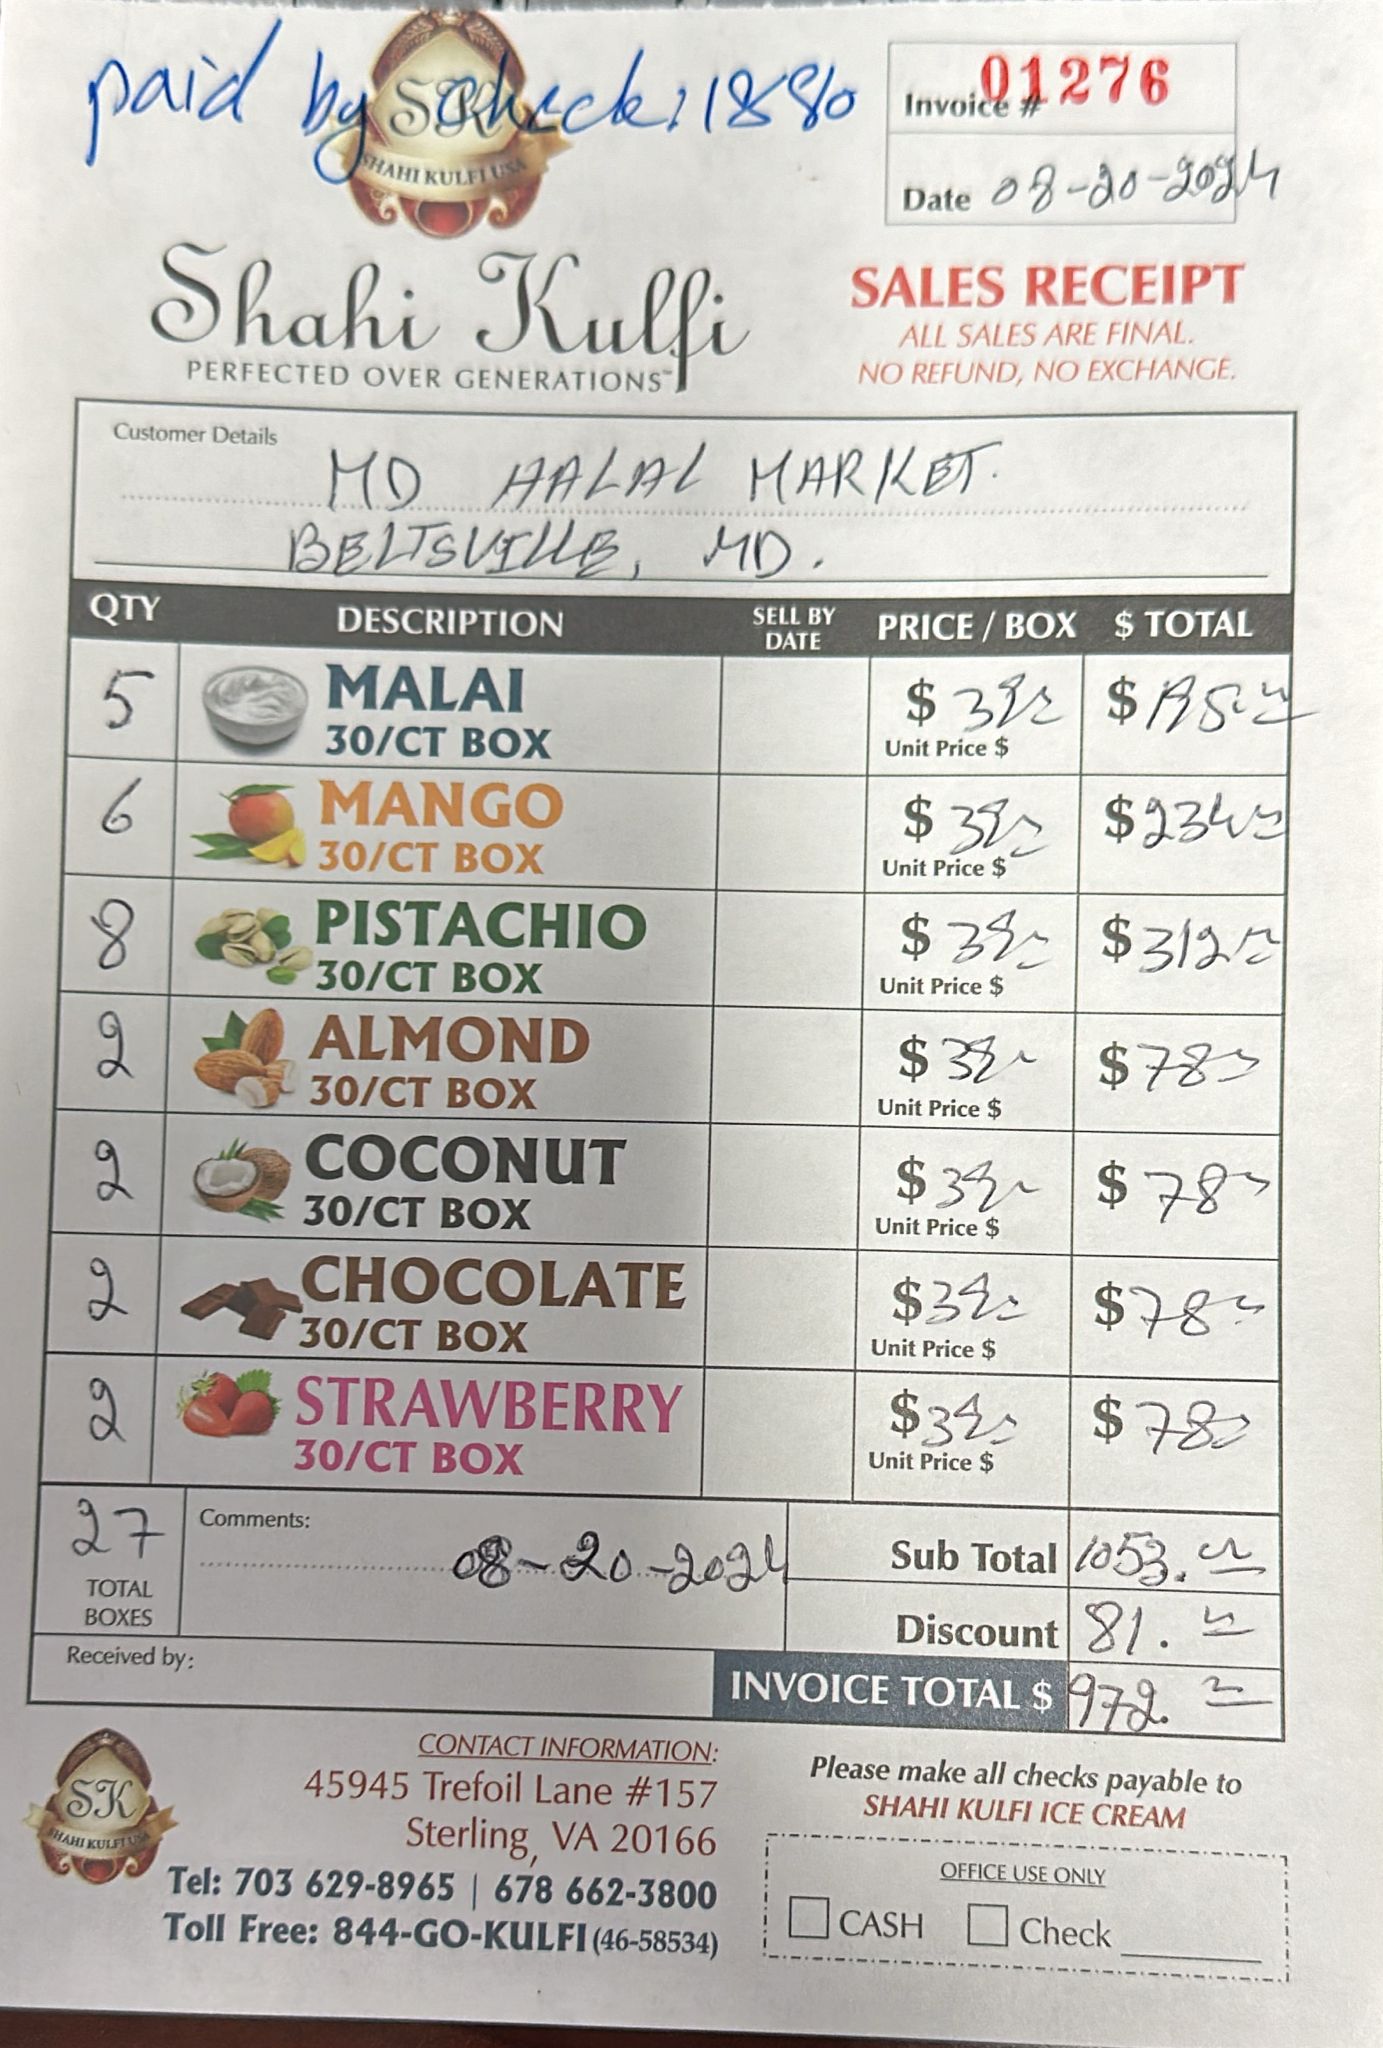 paid by check: 1880
SK
SHAHI KULFI USA
Invoice # 01276
Date 08-20-2024
Shahi Kulfi
PERFECTED OVER GENERATIONS™
SALES RECEIPT
ALL SALES ARE FINAL.
NO REFUND, NO EXCHANGE.
Customer Details
MD HALAL MARKET.
BELTSVILLE, MD.
QTY DESCRIPTION SELL BY DATE PRICE / BOX $ TOTAL
5 MALAI $ 39 $ 195
30/CT BOX Unit Price $
6 MANGO $ 39 $ 234
30/CT BOX Unit Price $
8 PISTACHIO $ 39 $ 312
30/CT BOX Unit Price $
2 ALMOND $ 39 $ 78
30/CT BOX Unit Price $
2 COCONUT $ 39 $ 78
30/CT BOX Unit Price $
2 CHOCOLATE $ 39 $ 78
30/CT BOX Unit Price $
2 STRAWBERRY $ 39 $ 78
30/CT BOX Unit Price $
27
TOTAL
BOXES
Comments:
08-20-2024
Sub Total 1053.
Discount 81.
Received by:
INVOICE TOTAL $ 972.
SK
SHAHI KULFI USA
CONTACT INFORMATION:
45945 Trefoil Lane #157
Sterling, VA 20166
Tel: 703 629-8965 | 678 662-3800
Toll Free: 844-GO-KULFI (46-58534)
Please make all checks payable to
SHAHI KULFI ICE CREAM
OFFICE USE ONLY
CASH Check